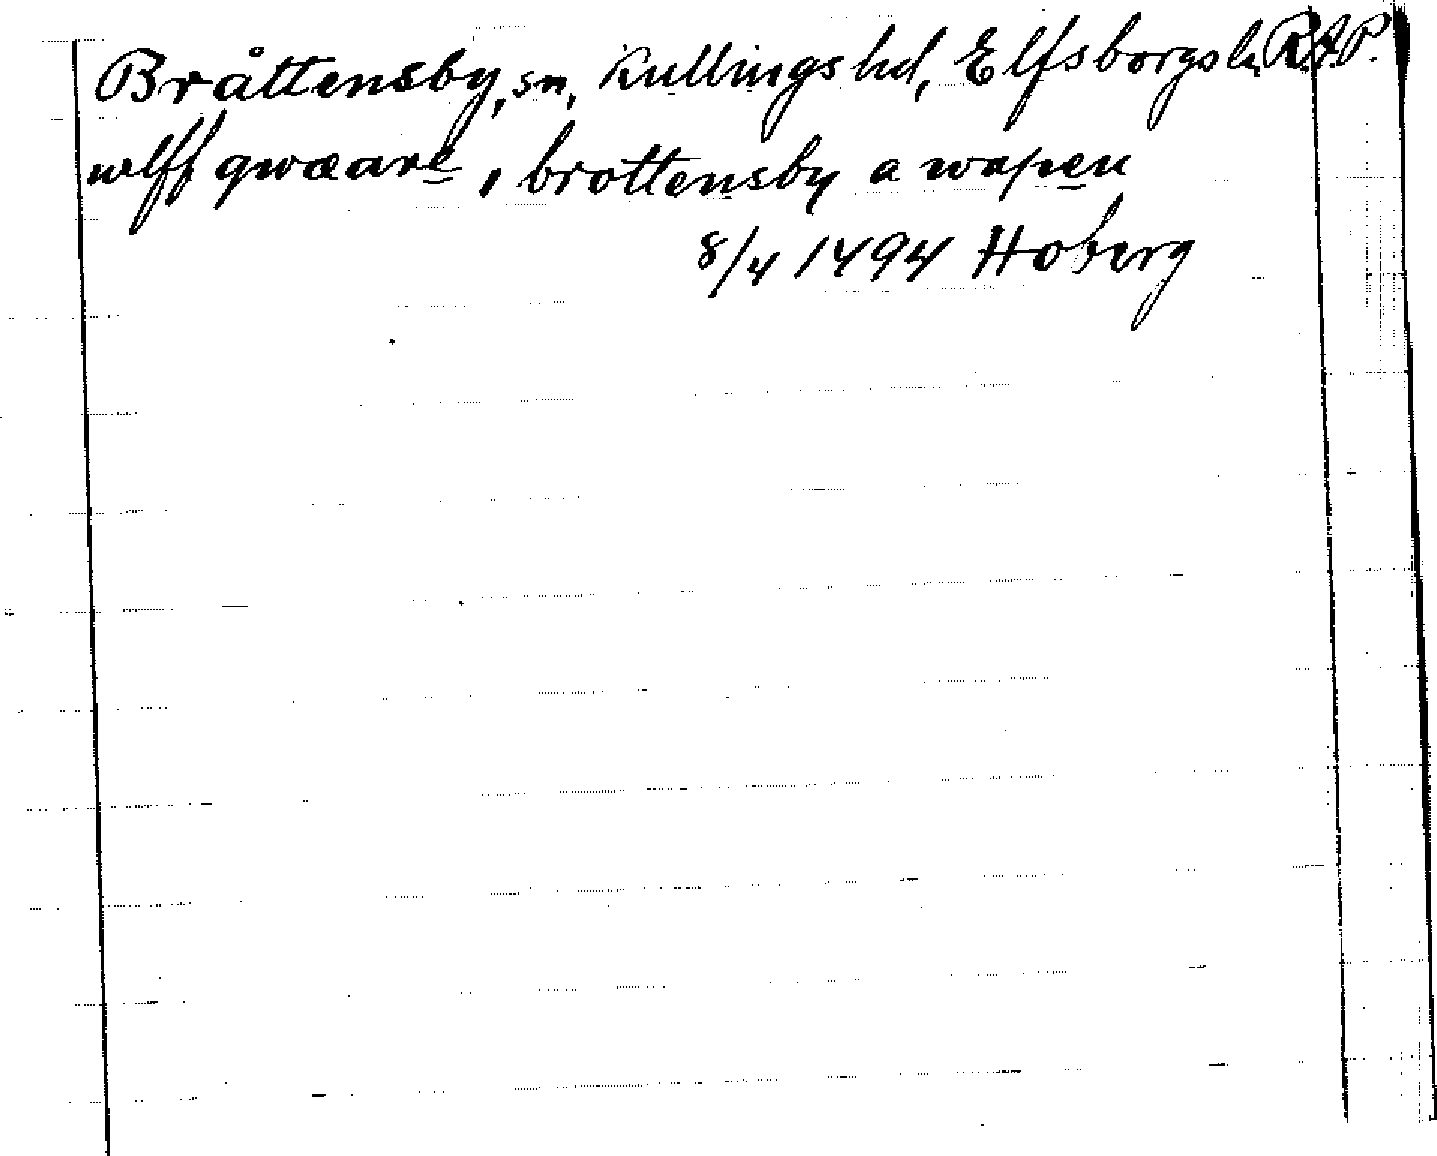 Bråttensby, sn, Kullings hd, Elfsborgs l. RAP.
wlff qwæare, i brottensby a wapen
8/4 1494 Hoberg